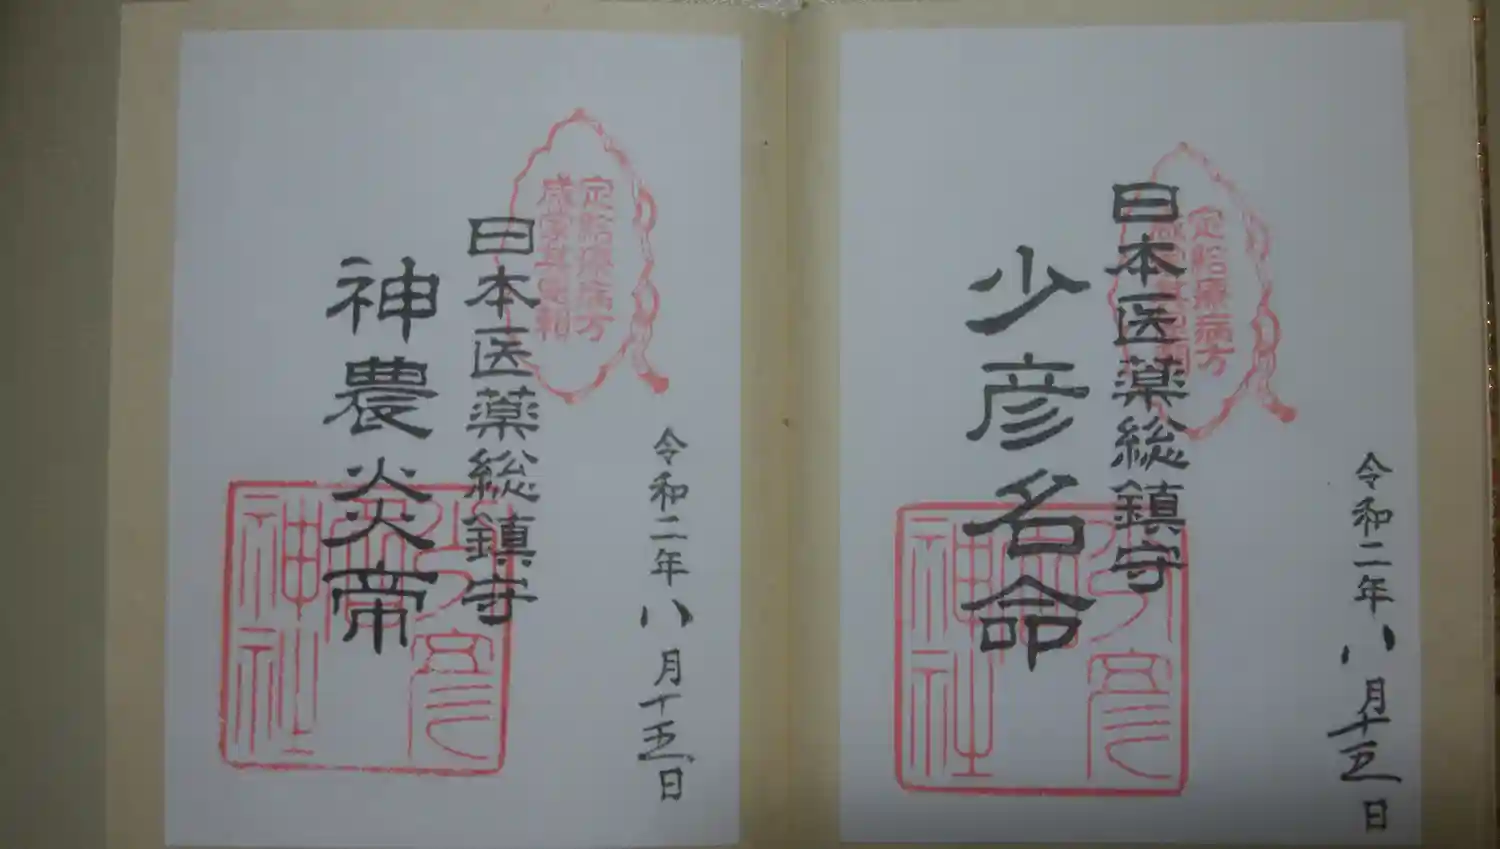 令和二年八月十五日
定 療病方
咸蒙其恩頼
日本医薬総鎮守
少彦名命
少彦
名
神社
令和二年八月十五日
定 療病方
咸蒙其恩頼
日本医薬総鎮守
神農炎帝
少彦
名
神社